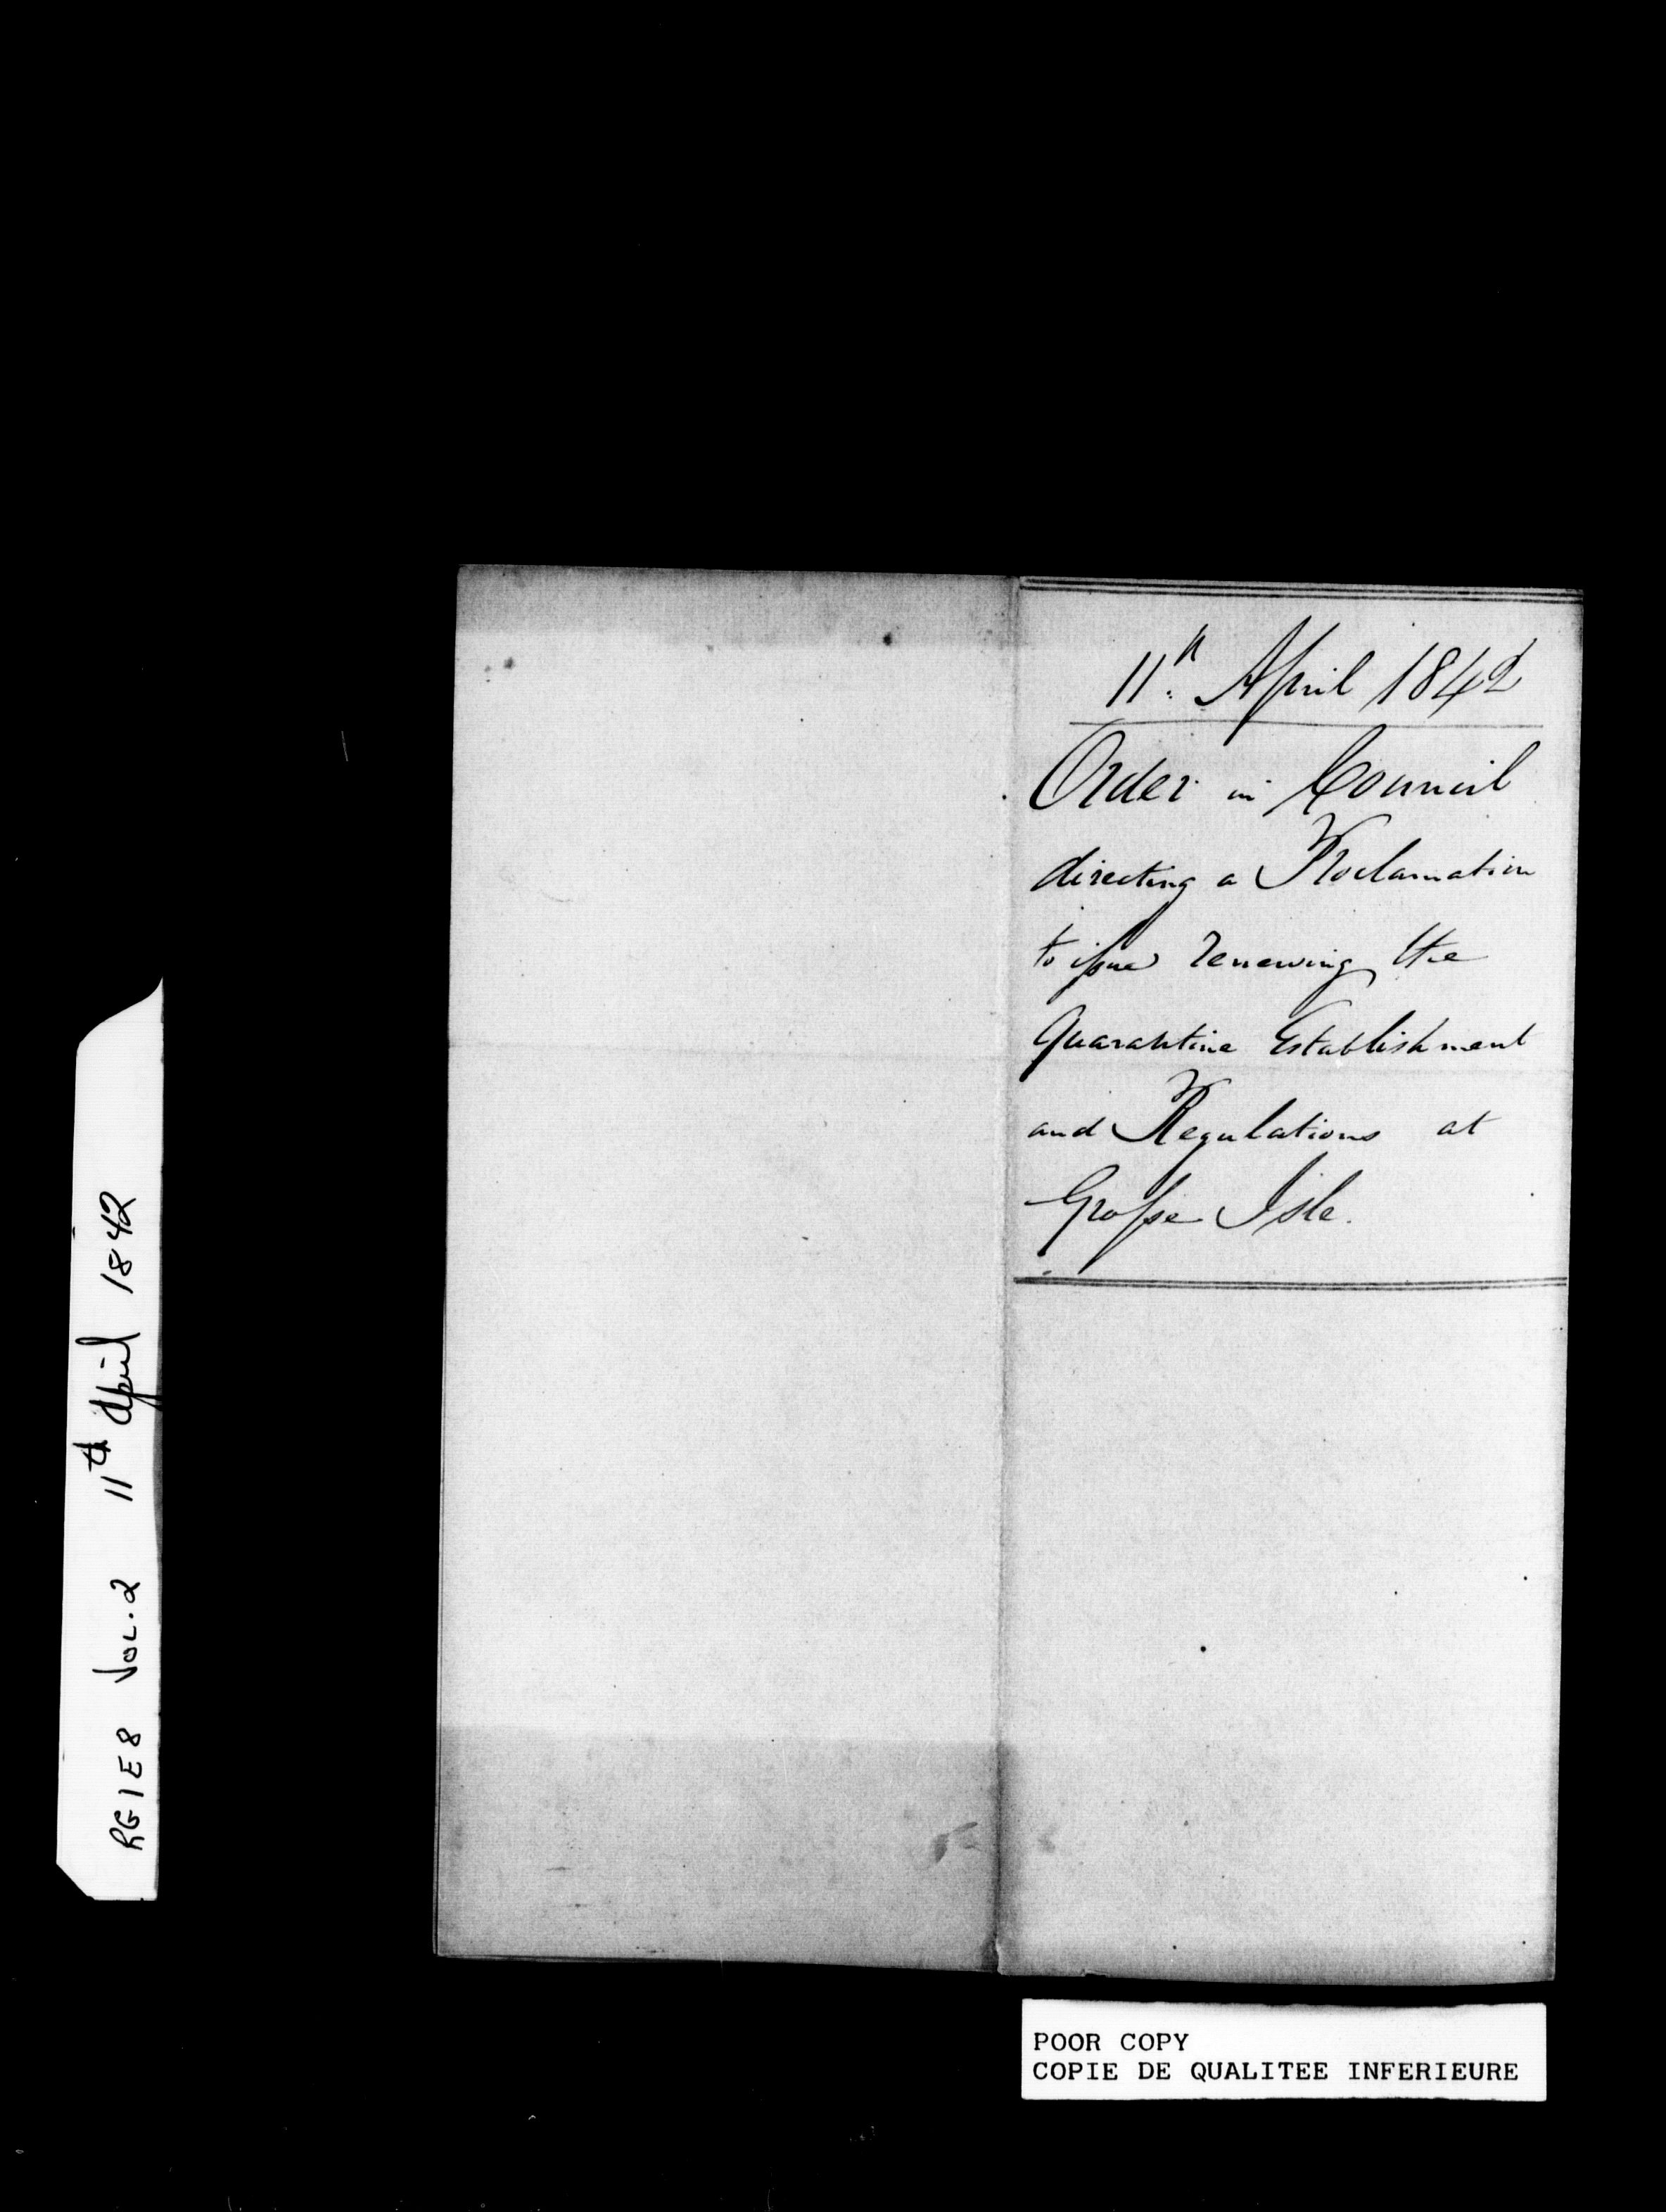 11th April 1842
Order in Council
directing a Proclamation
to issue renewing the
Quarantine Establishment
and Regulations at
Grosse Isle.
RG1E8 VOL.2 11th April 1842
POOR COPY
COPIE DE QUALITEE INFERIEURE